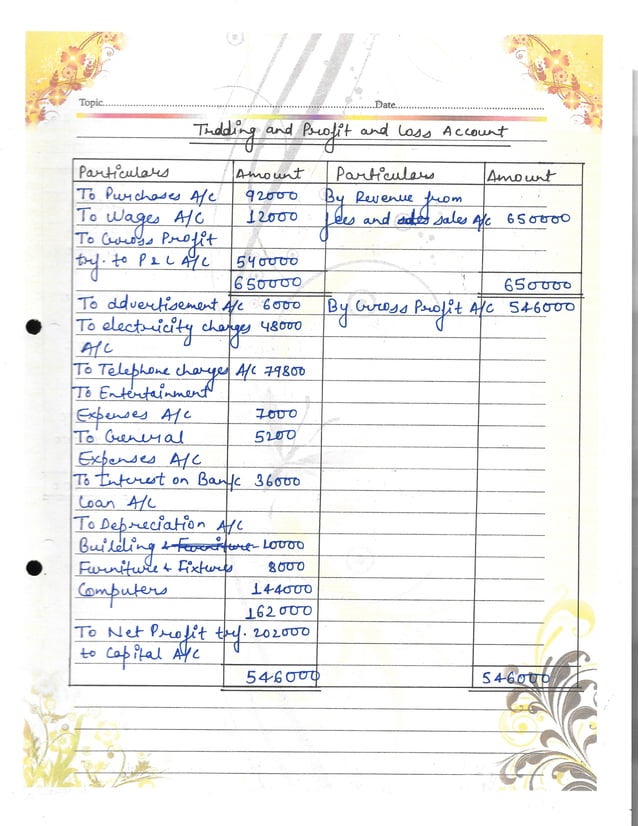 Topic Date
Trading and Profit and Loss Account
Particulars Amount Particulars Amount
To Purchases A/C 92000 By Revenue from
To Wages A/C 12000 fees and sales A/C 650000
To Gross Profit
trf. to P & L A/C 540000
650000 650000
To advertisement A/C 6000 By Gross Profit A/C 546000
To electricity charges 48000
A/C
To Telephone charges A/C 79800
To Entertainment
Expenses A/C 7000
To General 5200
Expenses A/C
To Interest on Bank 36000
Loan A/C
To Depreciation A/C
Building & Furniture 10000
Furniture & Fixtures 8000
Computers 144000
162000
To Net Profit trf. 202000
to Capital A/C
546000 546000